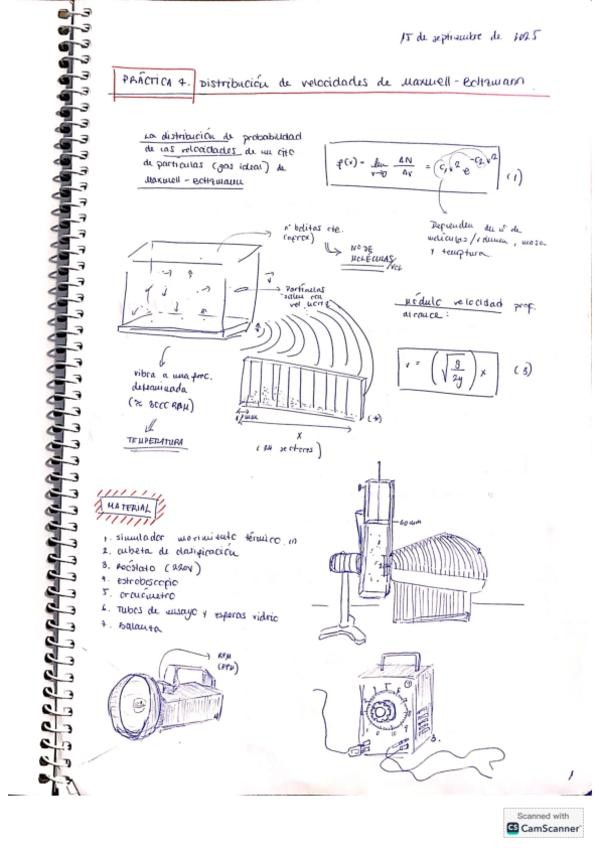 15 de septiembre de 2025
PRÁCTICA 7. Distribución de velocidades de Maxwell-Boltzmann
La distribución de probabilidad
de las velocidades de un cjto
de partículas (gas ideal) de
Maxwell-Boltzmann
(1)
Dependen del nº de
moléculas/volumen, masa
y temptura.
nº bolitas cte.
(aprox)
Nº DE
MOLÉCULAS/VOL
Partículas
salen con
vel. horiz
módulo velocidad prof.
alcance:
v = (√g/2y) x (3)
vibra a una frec.
determinada
(≈ 3000 RPM)
TEMPERATURA
x
(24 sectores)
MATERIAL
1. simulador movimiento térmico (1)
2. cubeta de clasificación
3. Reóstato (220V)
4. estroboscopio
5. cronómetro
6. Tubos de ensayo y esferas vidrio
7. balanza
RPM
1
Scanned with
CS CamScanner